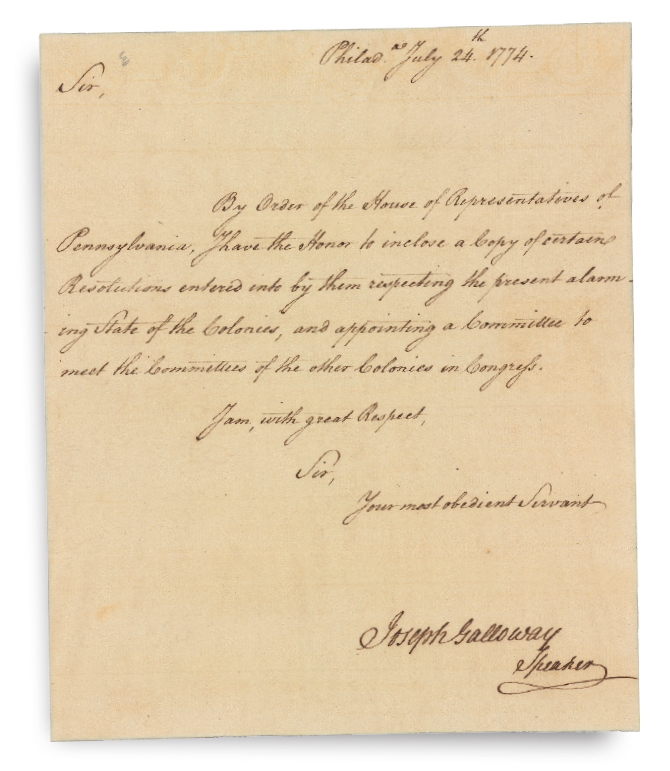 Philad.ª July 24.th 1774.
Sir,
By Order of the House of Representatives of
Pennsylvania, I have the Honor to inclose a Copy of certain
Resolutions entered into by them respecting the present alarm-
ing State of the Colonies, and appointing a Committee to
meet the Committees of the other Colonies in Congress.
I am, with great Respect,
Sir,
Your most obedient Servant
Joseph Galloway
Speaker